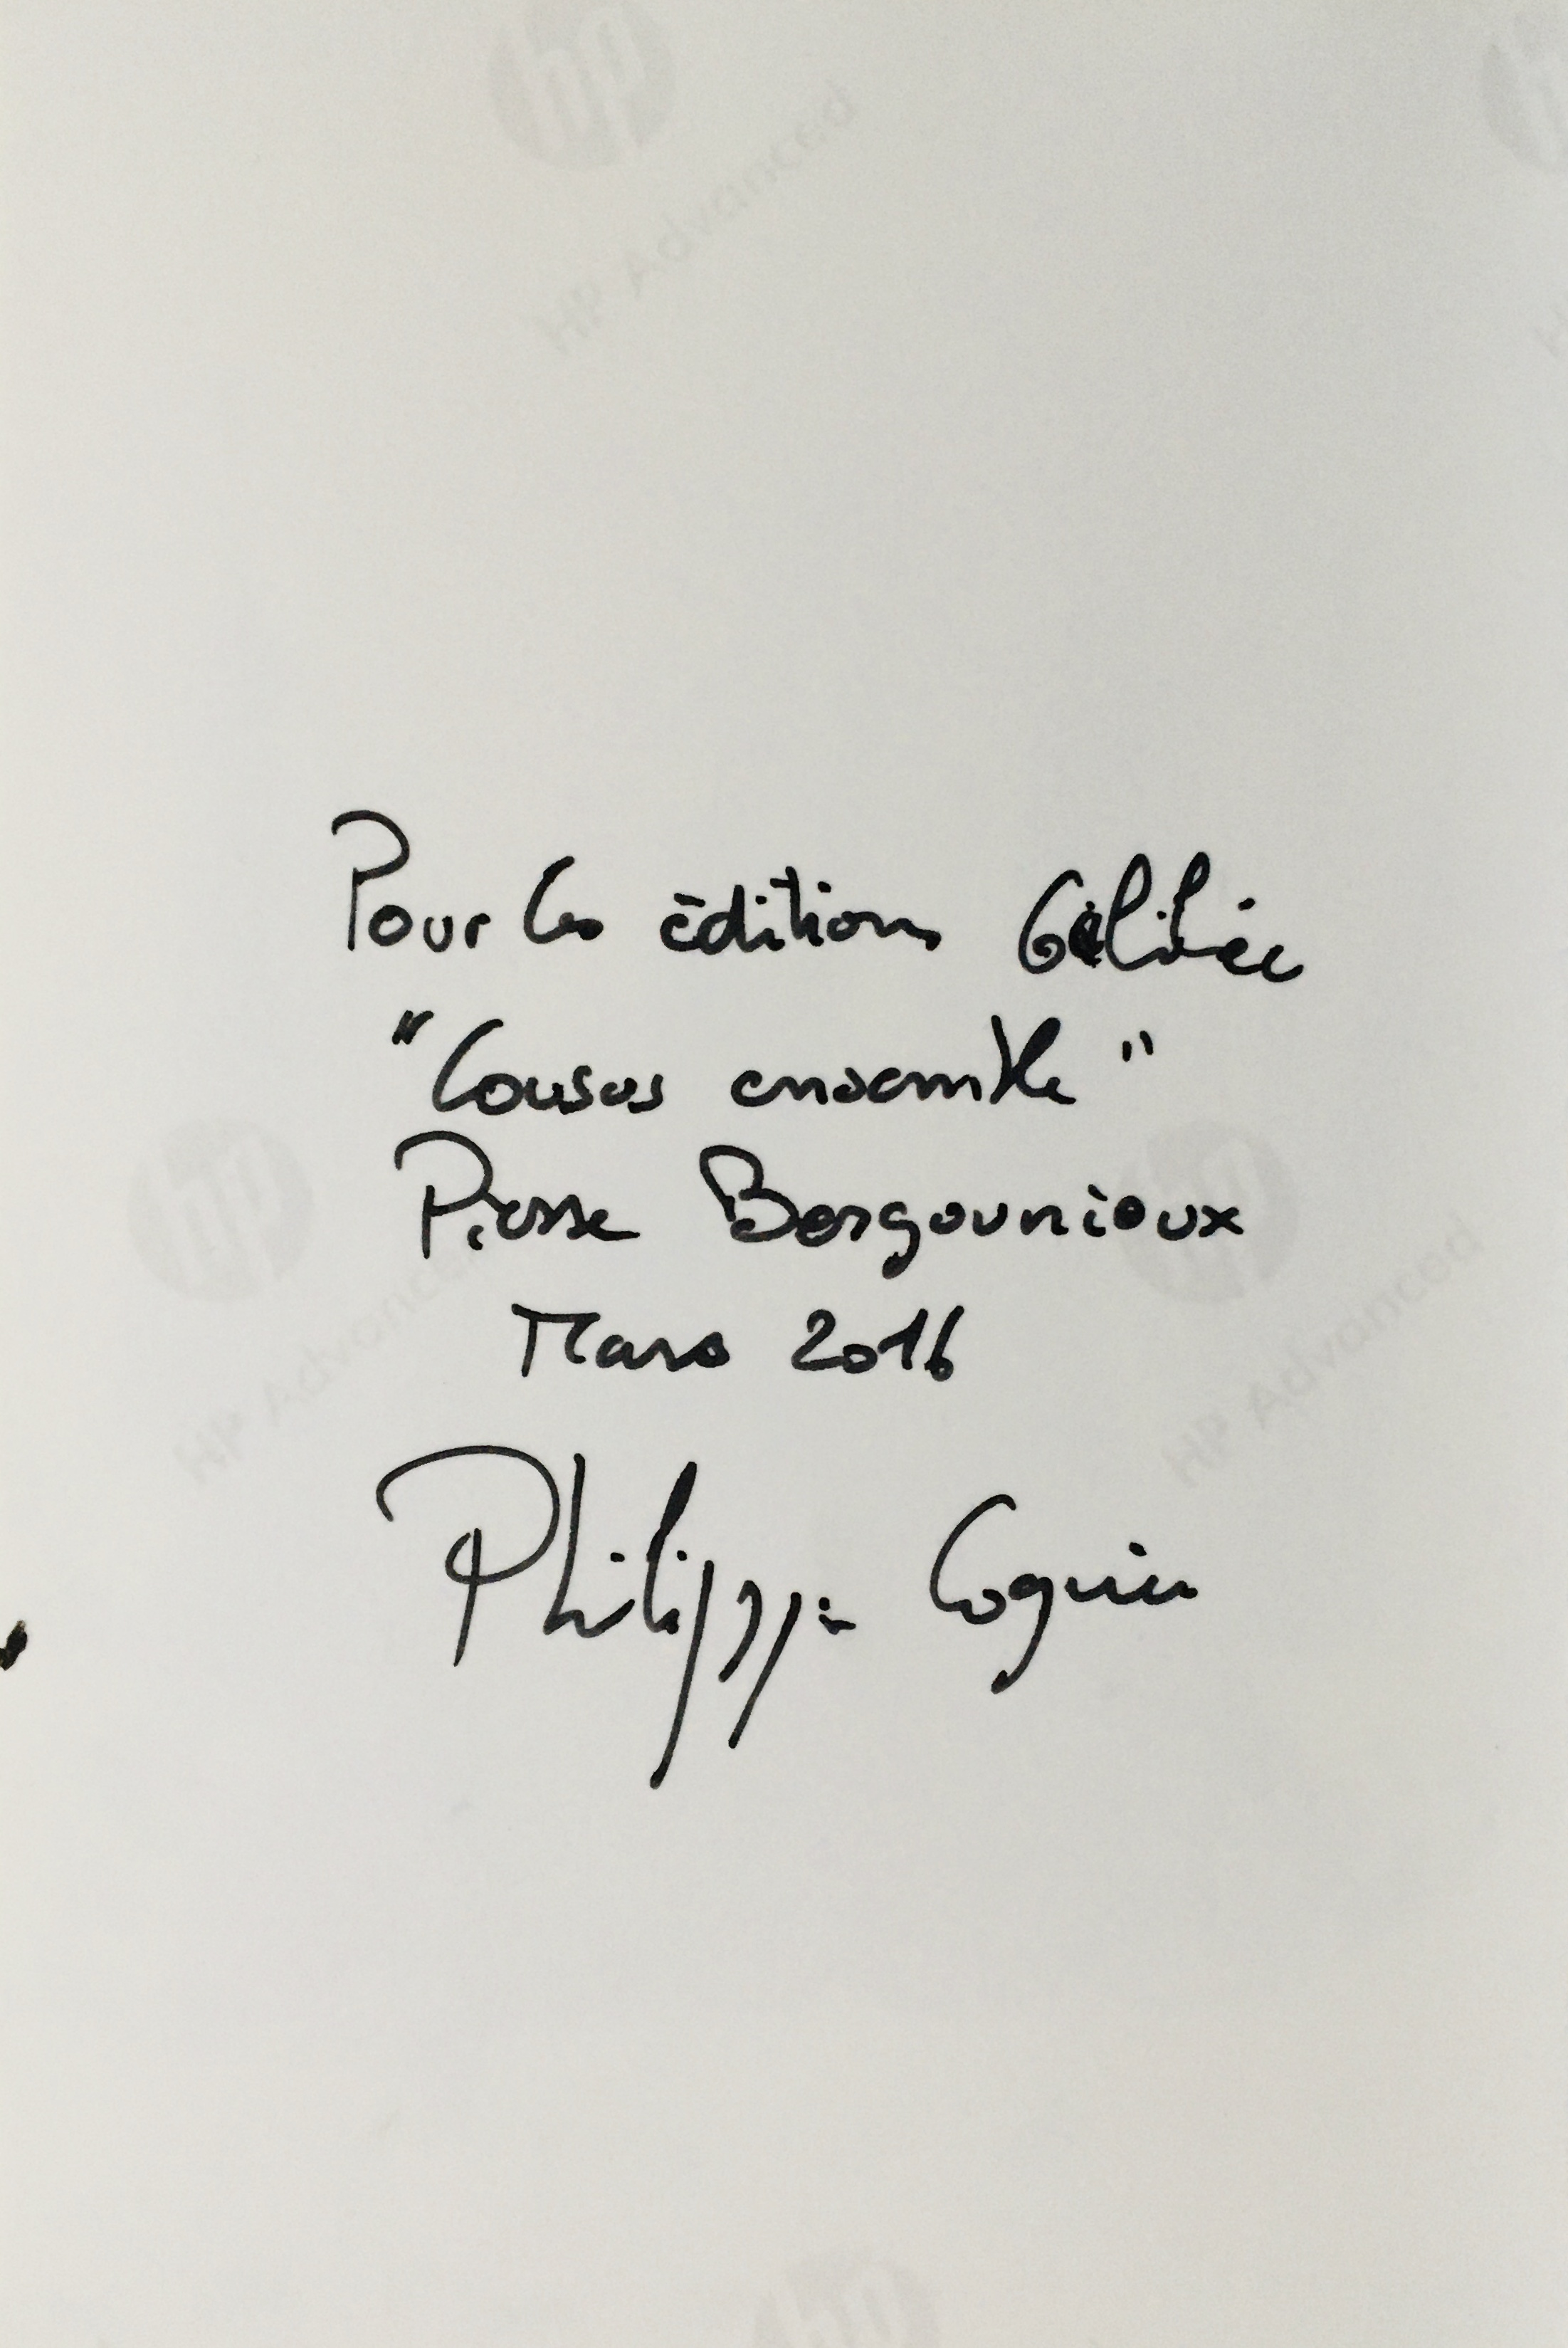 hp
HP Advanced
Pour les éditions Galilée
"Cousus ensemble"
Pierre Bergounioux
hp
hp
Mars 2016
HP Advanced
HP Advanced
Philippe Cognée
hp